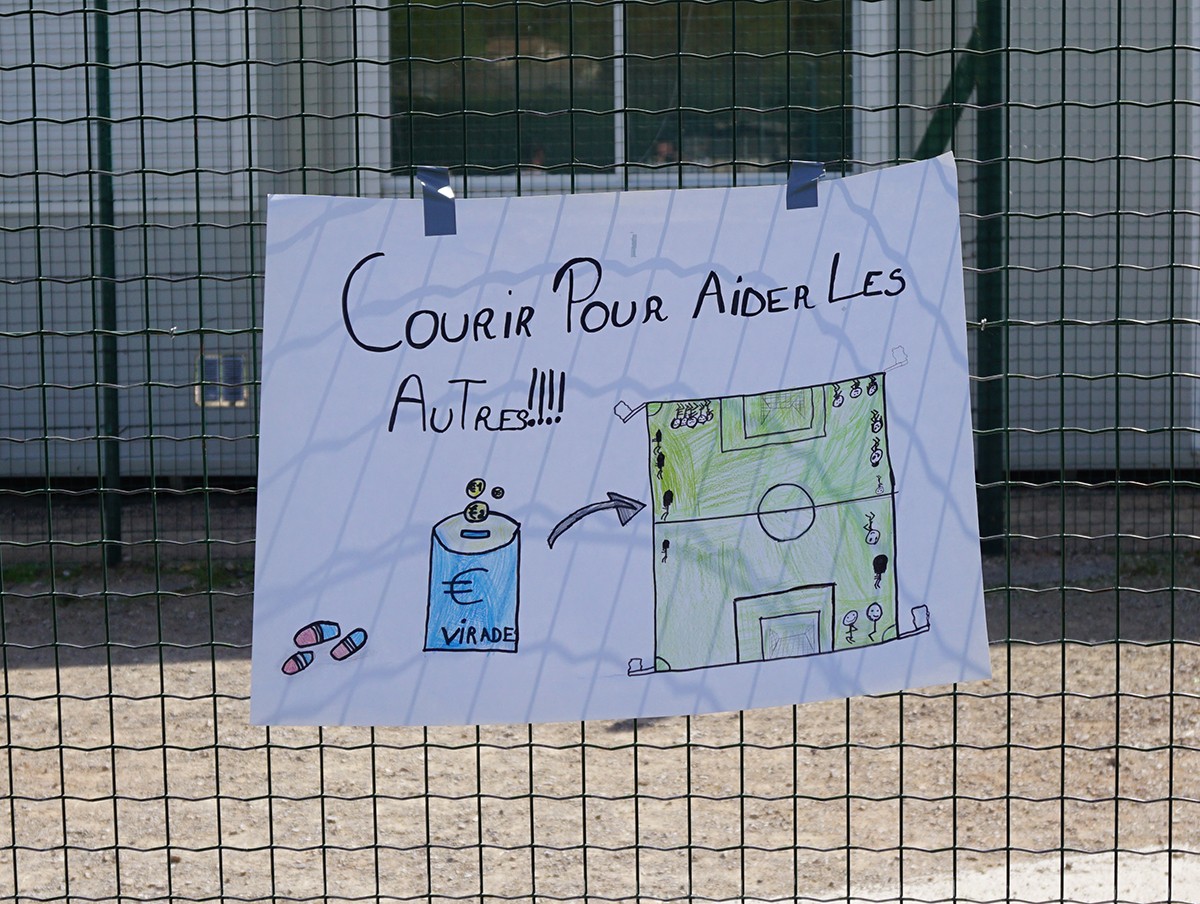 Courir Pour Aider Les
Autres!!!!
€1
€2
€
VIRADE